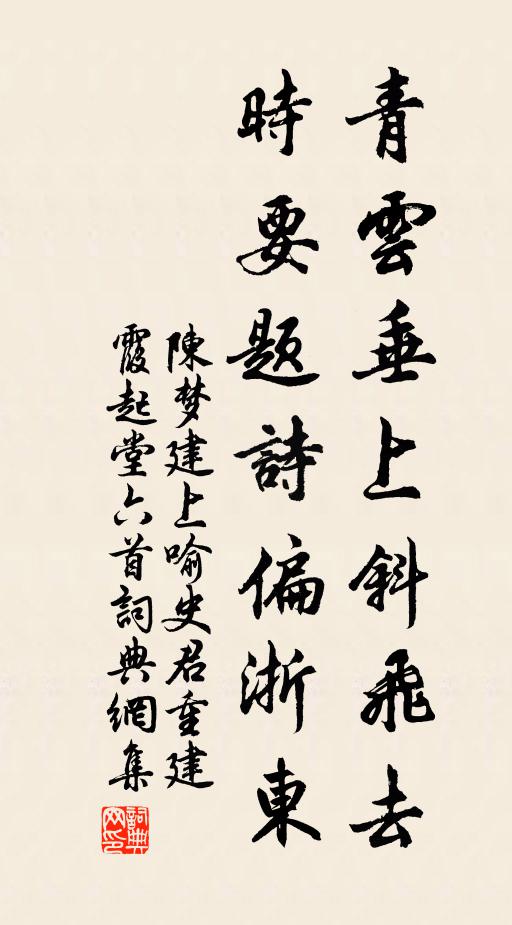 青雲垂上斜飛去
時要題詩偏浙東
陳梦建上喻史君重建
霞起堂六首詞典網集
詞典
网印